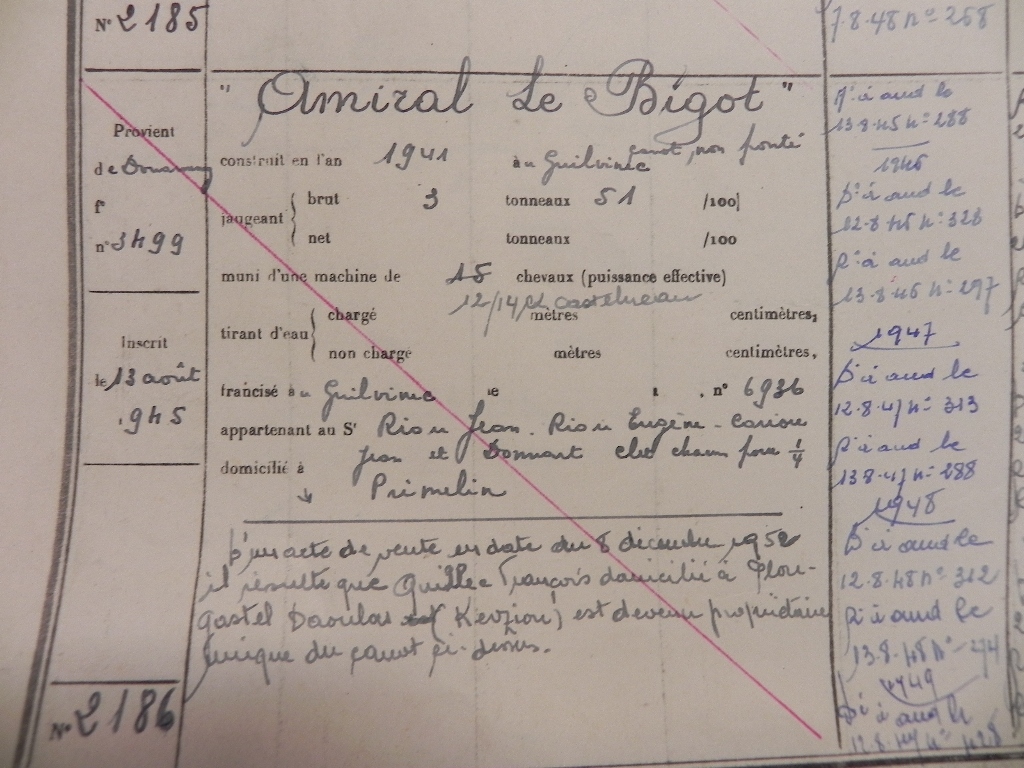 N° 2185
Provient
de Douarnenez
f°
n° 3499
Inscrit
le 13 août
1945
N° 2186
" Amiral Le Bigot "
construit en l'an 1941 à au Guilvinec canot, non ponté
jaugeant { brut 3 tonneaux 51 /100
net tonneaux /100
muni d'une machine de 15 chevaux (puissance effective)
12/14 Ch Castelneau
tirant d'eau { chargé mètres centimètres,
non chargé mètres centimètres,
francisé à au Guilvinec le , n° 6936
appartenant au Sr Riou Jean. Riou Eugène - Cariou
Jean et Donnart chacun pour 1/4
domicilié à
Primelin
D'un acte de vente en date du 8 décembre 1952
il résulte que Quillec François domicilié à Plou-
gastel Daoulas (Kerziou) est devenu propriétaire
unique du canot ci-dessus.
7.8.48 n° 268
P. à aud le
13.8.45 n° 288
1946
P. à aud le
12.8.46 n° 328
P. à aud le
13.8.46 n° 297
1947
P. à aud le
12.8.47 n° 313
P. à aud le
13.8.47 n° 288
1948
P. à aud le
12.8.48 n° 312
P. à aud le
13.8.48 n° 274
1949
P. à aud le